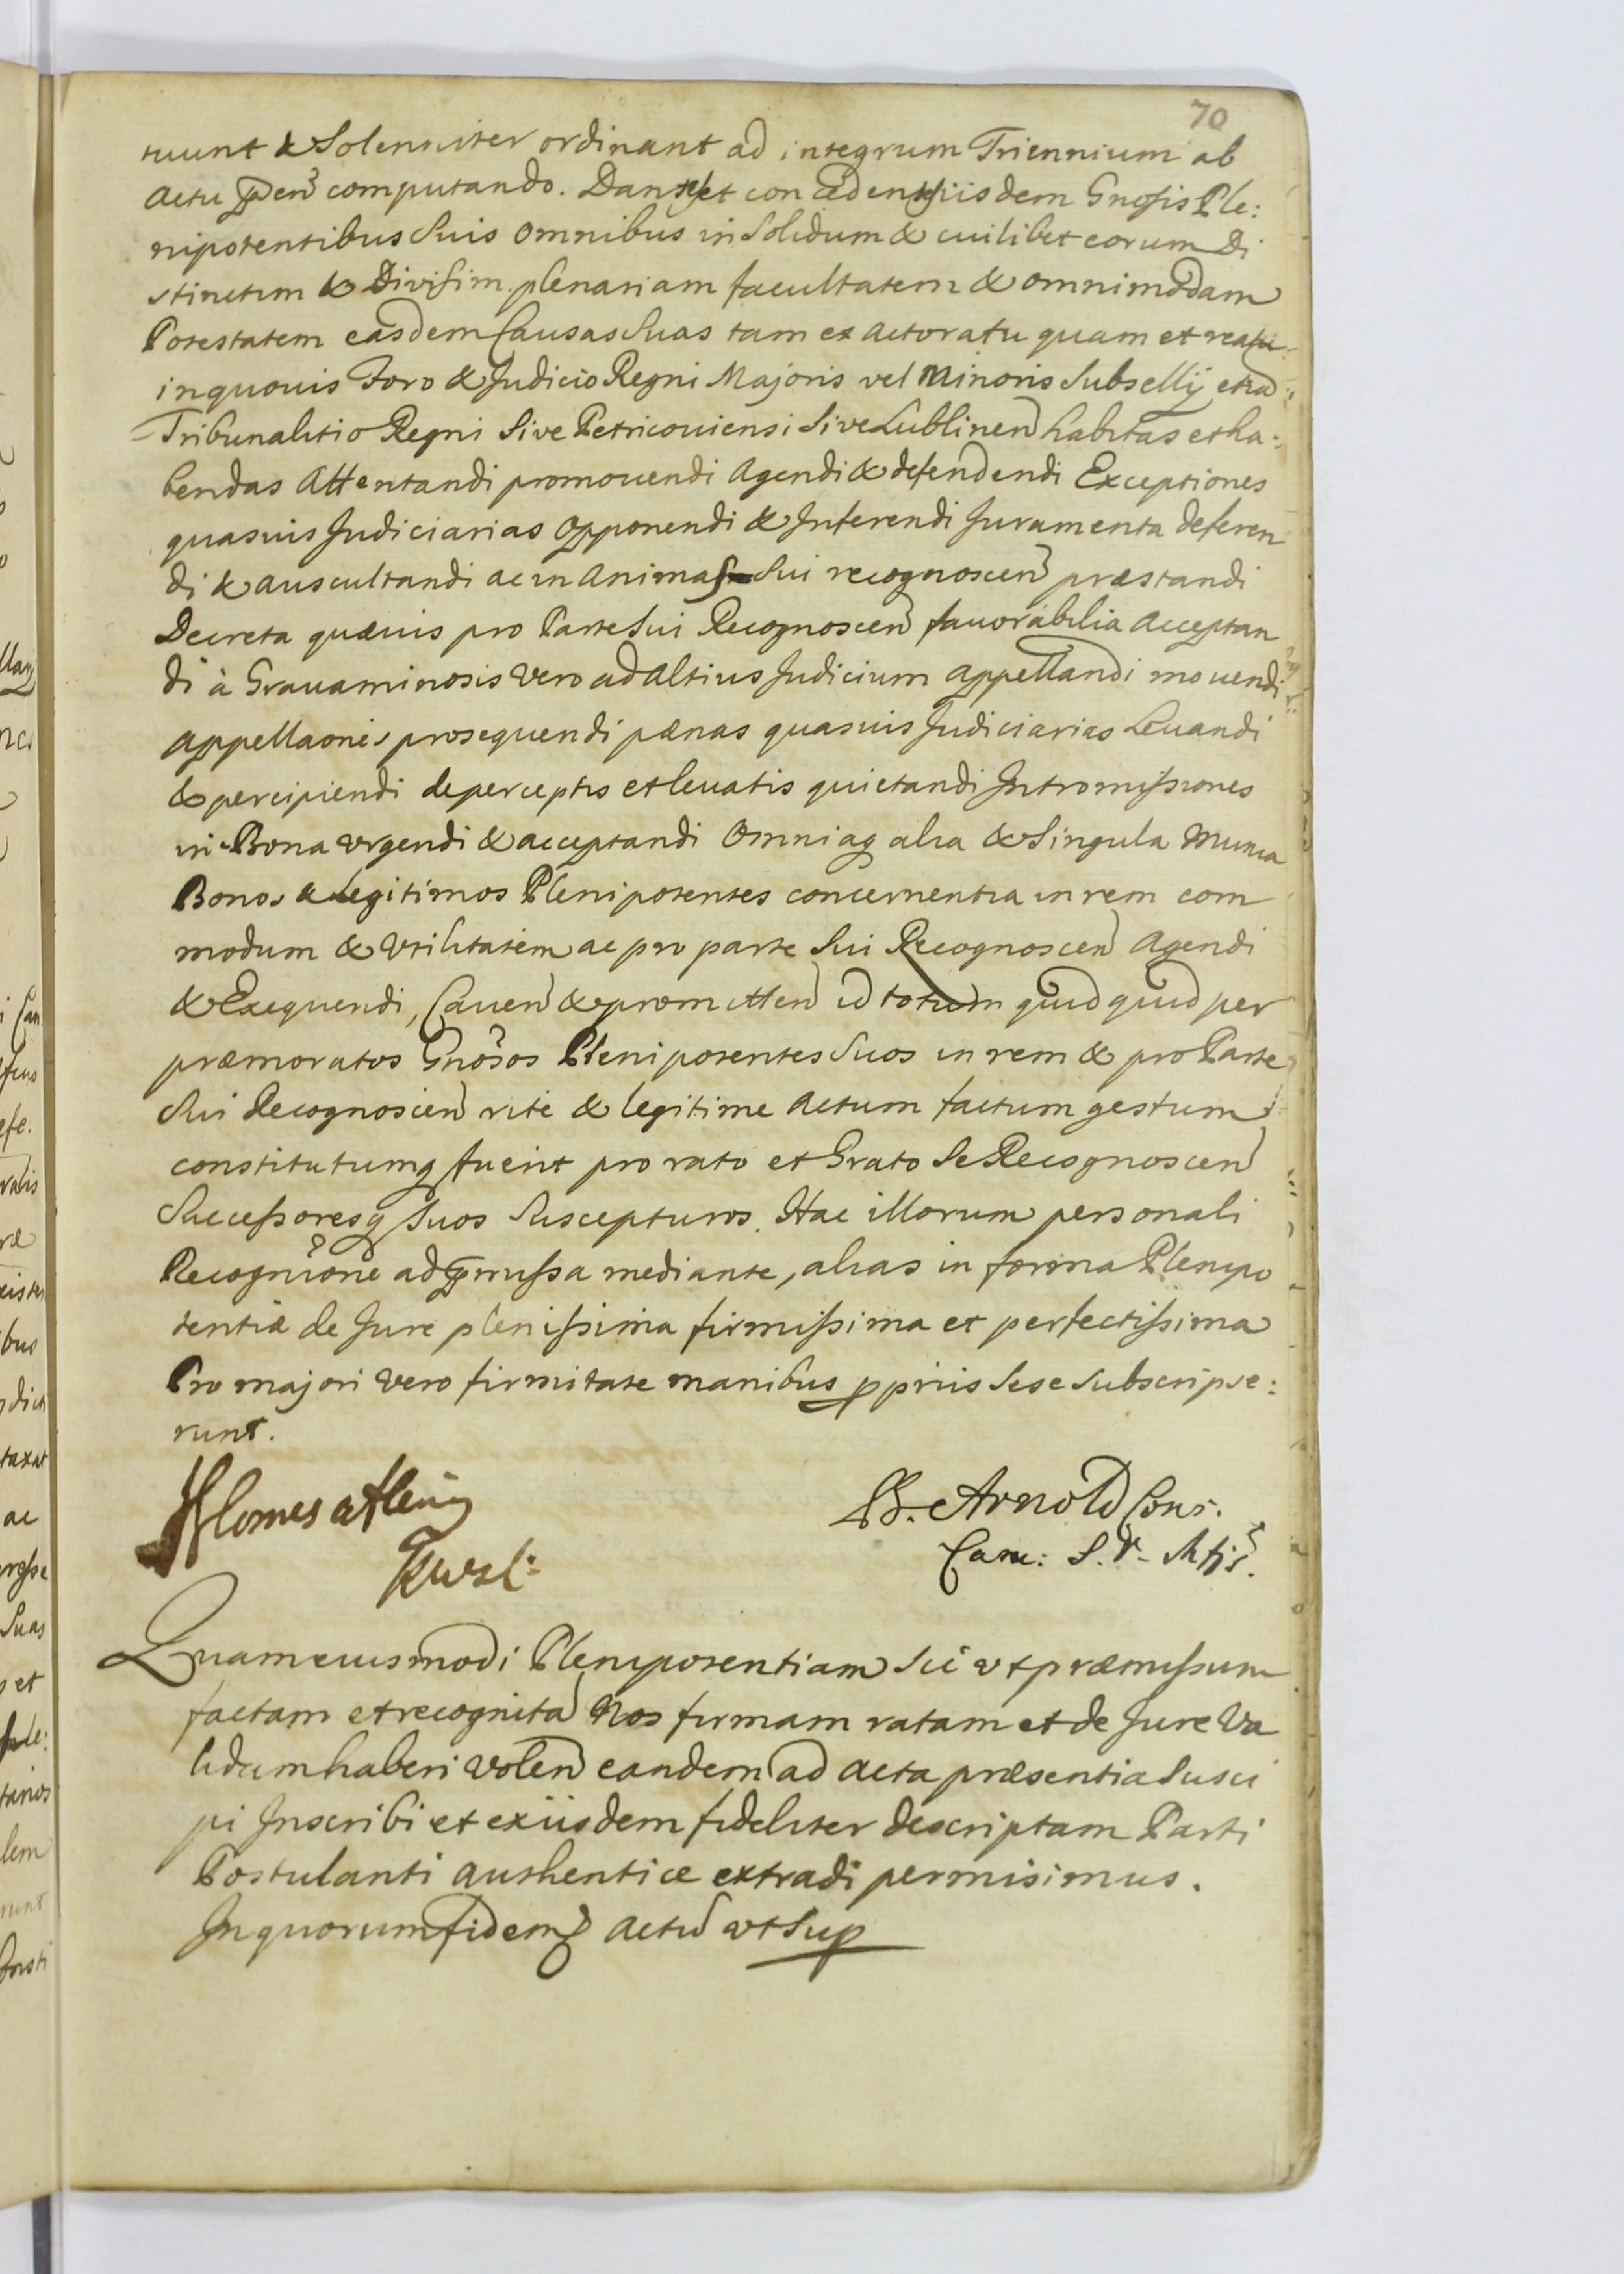 70
tuunt & Solenniter ordinant ad integrum Triennium ab
Actu pñeñ computando. Dantes et concedentes iisdem Gnosis Ple:
nipotentibus Suis omnibus in Solidum & cuilibet eorum Di
stinctim & Divisim plenariam facultatem & omnimodam
Potestatem easdem Causas Suas tam ex actoratu quam et reatu
in quouis Foro & Judicio Regni Majoris vel Minoris Subsellij etiã
Tribunalitio Regni Sive Petricouiensi Sive Lublineñ habitas et ha:
bendas Attentandi promouendi Agendi & defendendi Exceptiones
quasuis Judiciarias Opponendi & Inferendi Juramenta deferen
di & auscultandi ac in animas Sui recognosceñ præstandi
Decreta quæuis pro Parte Sui Recognosceñ fauorabilia Acceptan
di à Grauaminosis vero ad Altius Judicium appellandi mouendi
appellaones prosequendi pænas quasuis Judiciarias Leuandi
& percipiendi de perceptis et leuatis quietandi Intromissiones
in Bona vrgendi & acceptandi Omniaq alia & Singula Munia
Bonos & legitimos Plenipotentes concernentia in rem com
modum & Vtilitatem ac pro parte Sui Recognosceñ Agendi
& Exequendi, Caueñ & promitteñ id totum quidquid per
præmoratos Gnosos Plenipotentes Suos in rem & pro Parte
Sui Recognosceñ rite & legitime Actum factum gestum
constitutumq fuerit pro rato et Grato Se Recognosceñ
Successoresq Suos Suscepturos. Hac illorum personali
Recognione ad præmissa mediante, alias in forma Plenipo
tentiæ de Jure plenissima firmissima et perfectissima
Pro majori vero firmitate manibus ppriis Sese subscripse:
runt.
B. Arnold Cons.
Cam: S. R. Mtis.
Quam eiusmodi Plenipotentiam Sic vt præmissum
factam et recognitã Nos firmam ratam et de Jure Va
lidum haberi voleñ eandem ad Acta præsentia Susci
pi Inscribi et ex iisdem fideliter descriptam Parti
Postulanti authentice extradi permisimus.
In quorum fidem Actũ vt Sup